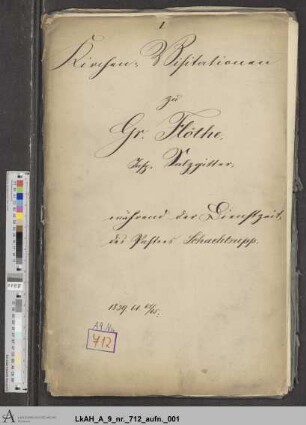 1
Kirchen-Visitationen
zu
Gr. Flöthe,
Insp. Salzgitter.
während der Dienstzeit
des Pastors
1839
A 9 Nr.
712
LkAH_A_9_nr._712_aufn._001